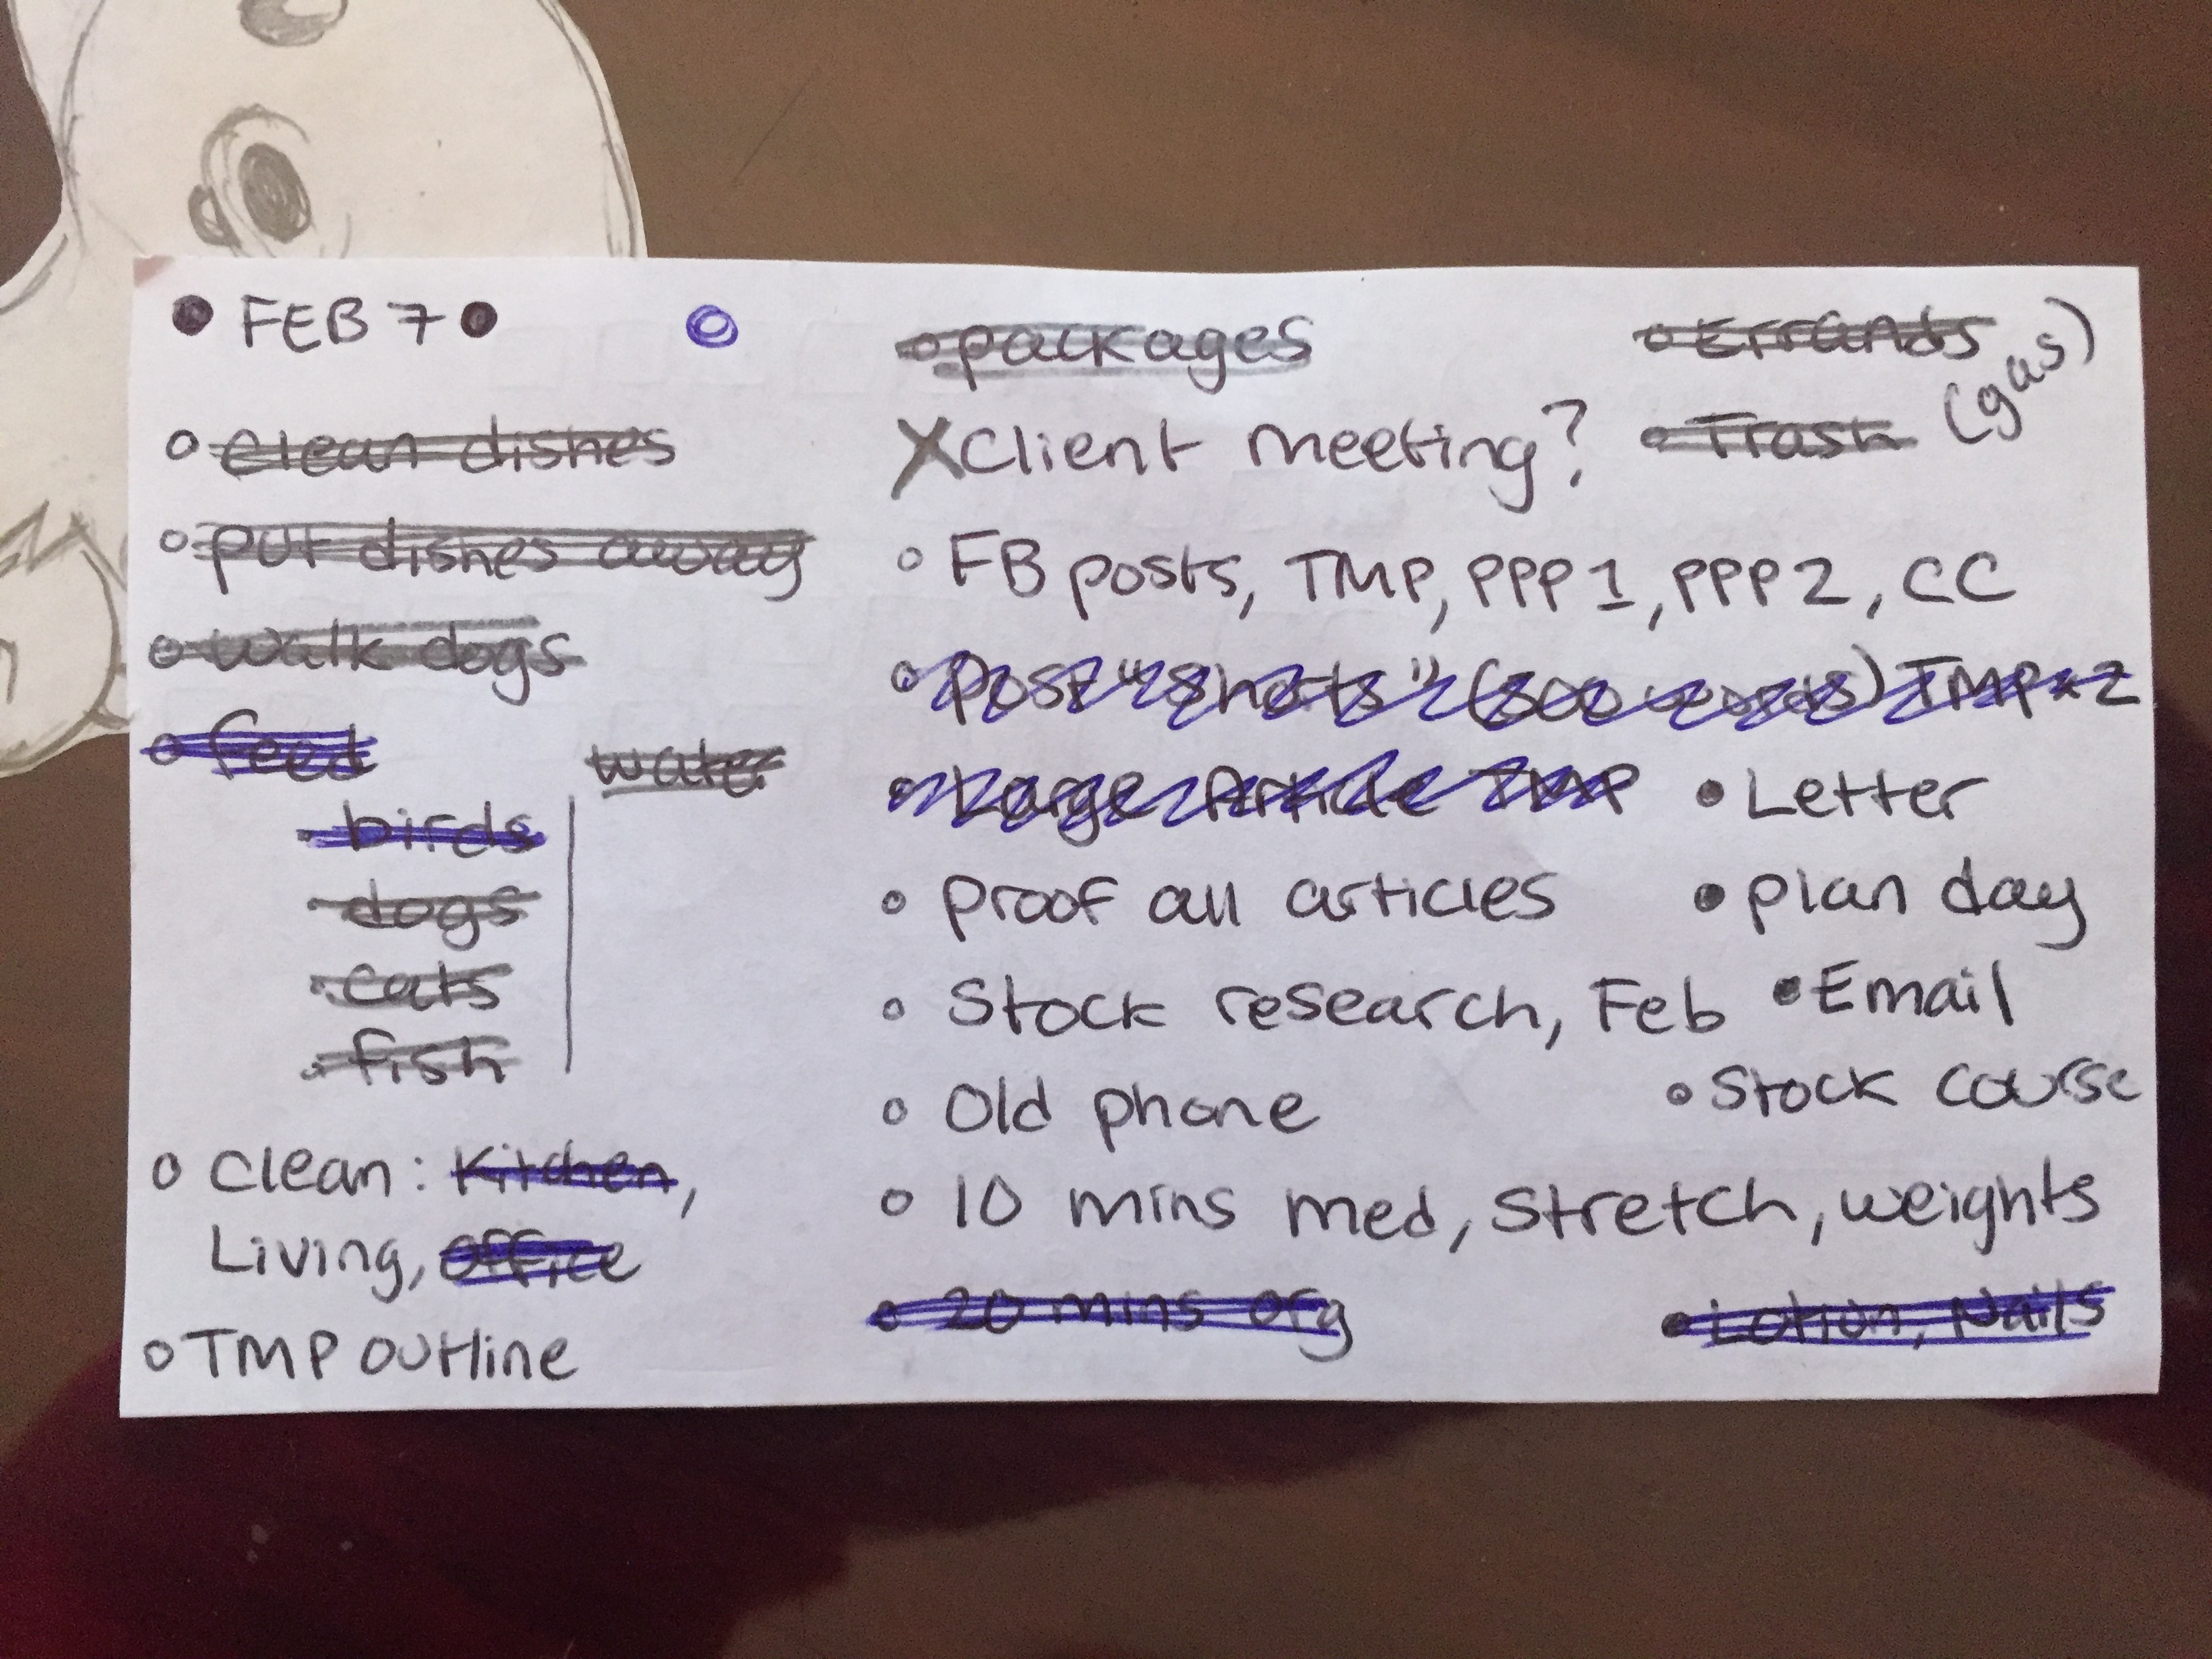 FEB 7
clean dishes
put dishes away
walk dogs
feed
water
birds
dogs
cats
fish
Clean: Kitchen,
Living, office
TMP outline
packages
Errands
(gas)
X Client meeting?
Trash
FB posts, TMP, PPP 1, PPP 2, CC
Post "Shorts" (300 words) TMP x 2
Large Article TMP
Letter
proof all articles
plan day
Stock research, Feb
Email
Old phone
Stock course
10 mins med, Stretch, weights
20 mins org
Lotion, Nails